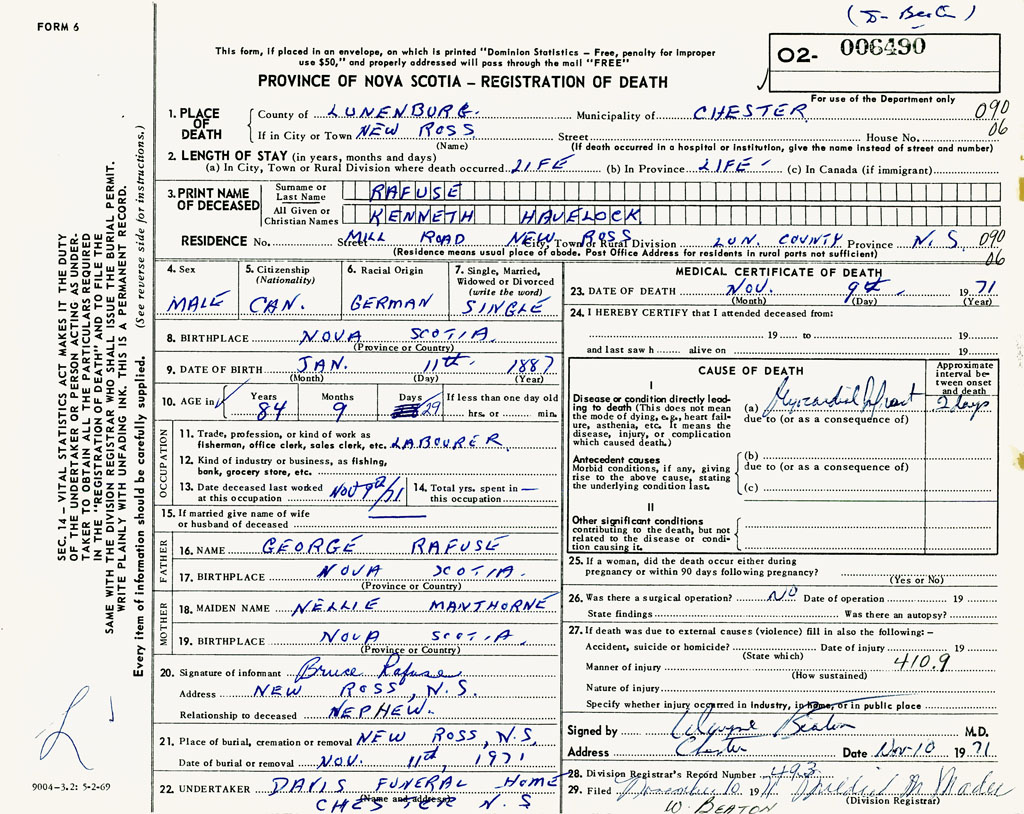 FORM 6
(D- Beaton)
This form, if placed in an envelope, on which is printed "Dominion Statistics – Free, penalty for improper
use $50," and properly addressed will pass through the mail "FREE"
PROVINCE OF NOVA SCOTIA – REGISTRATION OF DEATH
O2- 006490
For use of the Department only
1. PLACE OF DEATH County of LUNENBURG. Municipality of CHESTER 090
If in City or Town NEW ROSS Street House No. 06
(Name) (If death occurred in a hospital or institution, give the name instead of street and number)
2. LENGTH OF STAY (in years, months and days)
(a) In City, Town or Rural Division where death occurred LIFE (b) In Province LIFE - (c) In Canada (if immigrant)
3. PRINT NAME OF DECEASED Surname or Last Name RAFUSE
All Given or Christian Names KENNETH HAVELOCK
RESIDENCE No. Street MILL ROAD NEW ROSS City, Town or Rural Division LUN. COUNTY Province N.S. 090
(Residence means usual place of abode. Post Office Address for residents in rural parts not sufficient) 06
4. Sex MALE
5. Citizenship (Nationality) CAN.
6. Racial Origin GERMAN
7. Single, Married, Widowed or Divorced (write the word) SINGLE
8. BIRTHPLACE NOVA SCOTIA
(Province or Country)
9. DATE OF BIRTH JAN. 11th 1887
(Month) (Day) (Year)
10. AGE in Years Months Days If less than one day old
84 9 29 hrs. or min.
OCCUPATION
11. Trade, profession, or kind of work as
fisherman, office clerk, sales clerk, etc. LABOURER
12. Kind of industry or business, as fishing,
bank, grocery store, etc.
13. Date deceased last worked at this occupation NOV 9th/71
14. Total yrs. spent in this occupation —
15. If married give name of wife
or husband of deceased
FATHER
16. NAME GEORGE RAFUSE
17. BIRTHPLACE NOVA SCOTIA
(Province or Country)
MOTHER
18. MAIDEN NAME NELLIE MANTHORNE
19. BIRTHPLACE NOVA SCOTIA
(Province or Country)
20. Signature of informant Bruce Rafuse
Address NEW ROSS, N.S.
Relationship to deceased NEPHEW.
21. Place of burial, cremation or removal NEW ROSS, N.S.
Date of burial or removal NOV. 11th, 1971
22. UNDERTAKER DAVIS FUNERAL HOME
(Name and address)
CHESTER N.S
MEDICAL CERTIFICATE OF DEATH
23. DATE OF DEATH NOV. 9th. 1971
(Month) (Day) (Year)
24. I HEREBY CERTIFY that I attended deceased from:
19 to 19
and last saw h alive on 19
CAUSE OF DEATH
Approximate interval between onset and death
I
Disease or condition directly leading to death (This does not mean the mode of dying, e.g., heart failure, asthenia, etc. It means the disease, injury, or complication which caused death.)
(a) Myocardial Infarct 2 days
due to (or as a consequence of)
Antecedent causes
Morbid conditions, if any, giving rise to the above cause, stating the underlying condition last.
(b)
due to (or as a consequence of)
(c)
II
Other significant conditions
contributing to the death, but not related to the disease or condition causing it.
25. If a woman, did the death occur either during
pregnancy or within 90 days following pregnancy?
(Yes or No)
26. Was there a surgical operation? NO Date of operation 19
State findings Was there an autopsy?
27. If death was due to external causes (violence) fill in also the following: –
Accident, suicide or homicide? Date of injury 19
(State which)
Manner of injury 410.9
(How sustained)
Nature of injury
Specify whether injury occurred in industry, in home, or in public place
Signed by Wayne Beaton M.D.
Address Chester Date Nov-10 1971
28. Division Registrar's Record Number 493
29. Filed November 10 1971
(Division Registrar)
W. BEATON
SEC. 14 – VITAL STATISTICS ACT MAKES IT THE DUTY
OF THE UNDERTAKER OR PERSON ACTING AS UNDER-
TAKER TO OBTAIN ALL THE PARTICULARS REQUIRED
IN THE "REGISTRATION OF DEATH" AND TO FILE THE
SAME WITH THE DIVISION REGISTRAR WHO SHALL ISSUE THE BURIAL PERMIT.
WRITE PLAINLY WITH UNFADING INK. THIS IS A PERMANENT RECORD.
Every item of information should be carefully supplied. (See reverse side for instructions.)
9004-3.2: 5-2-69